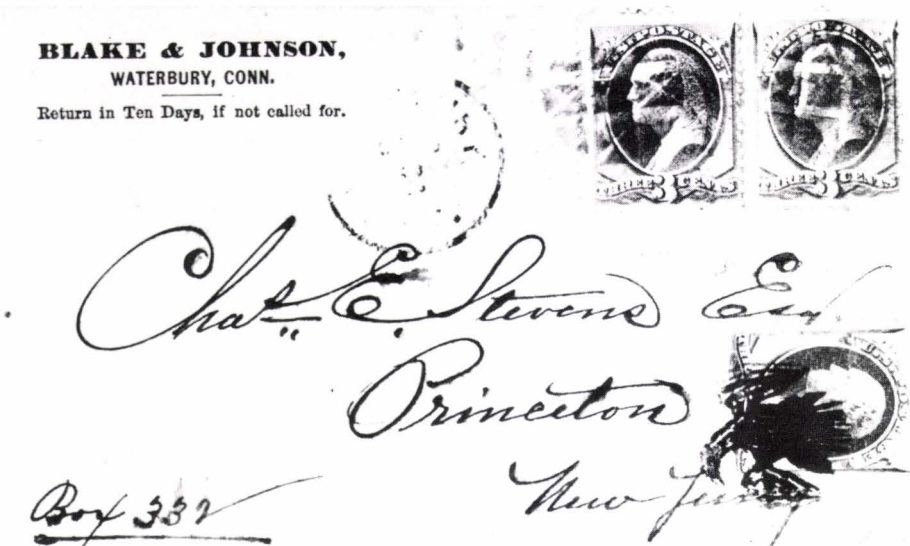 BLAKE & JOHNSON,
WATERBURY, CONN.
Return in Ten Days, if not called for.
U.S. POSTAGE
THREE 3 CENTS
THREE 3 CENTS
Chas. E. Stevens Esq.
Princeton
New Jersey
Box 332